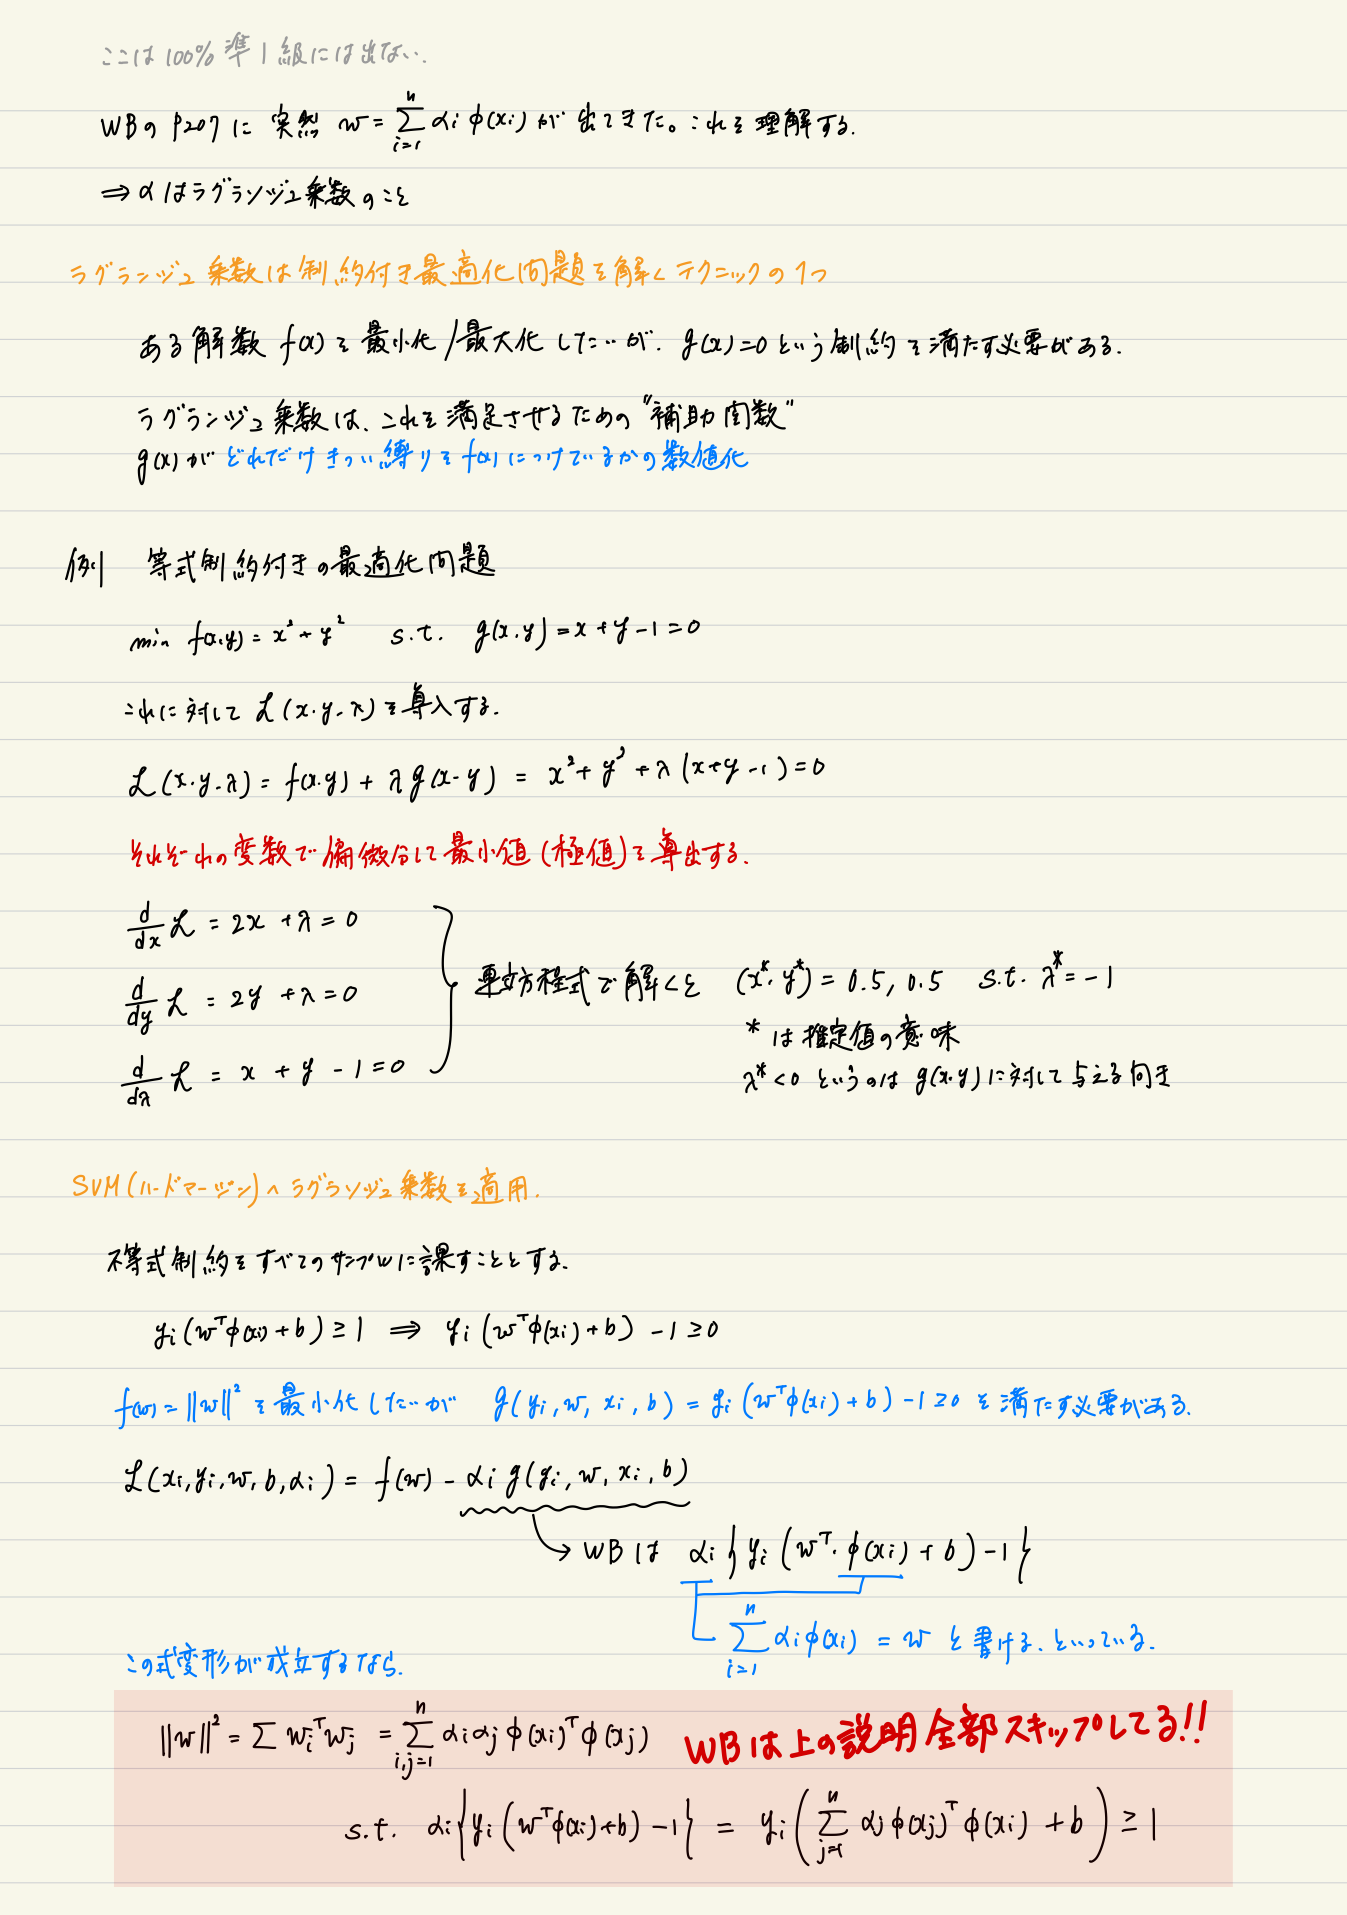 ここは100%準1級には出ない.
WBのP207に突然 w = Σ_{i=1}^{n} αi φ(xi) が出てきた。これを理解する.
⇒ αはラグランジュ乗数のこと
ラグランジュ乗数は制約付き最適化問題を解くテクニックの1つ
ある解数 f(x) を最小化/最大化したいが. g(x)=0という制約を満たす必要がある.
ラグランジュ乗数は、これを満足させるための"補助関数"
g(x)がどれだけきつい縛りをf(x)につけているかの数値化
例 等式制約付きの最適化問題
min f(x,y) = x² + y² s.t. g(x,y) = x + y - 1 = 0
これに対して L(x,y,λ) を導入する.
L(x,y,λ) = f(x,y) + λg(x-y) = x² + y² + λ(x+y-1) = 0
それぞれの変数で偏微分して最小値(極値)を導出する.
d/dx L = 2x + λ = 0
d/dy L = 2y + λ = 0
d/dλ L = x + y - 1 = 0
連立方程式で解くと (x*, y*) = 0.5, 0.5 s.t. λ* = -1
* は推定値の意味
λ* < 0 というのは g(x,y)に対して与える向き
SVM(ハードマージン)へラグランジュ乗数を適用.
不等式制約をすべてのサンプルに課すこととする.
yi(wᵀφ(xi) + b) ≥ 1 ⇒ yi(wᵀφ(xi) + b) - 1 ≥ 0
f(w) = ||w||² を最小化したいが g(yi, w, xi, b) = yi(wᵀφ(xi) + b) - 1 ≥ 0 を満たす必要がある.
L(xi, yi, w, b, αi) = f(w) - αi g(yi, w, xi, b)
→ WBは αi{yi(wᵀ・φ(xi) + b) - 1}
Σ_{i=1}^{n} αiφ(xi) = w と書ける、といっている.
この式変形が成立するなら.
||w||² = Σ wiᵀwj = Σ_{i,j=1}^{n} αiαj φ(xi)ᵀφ(xj) WBは上の説明全部スキップしてる!!
s.t. αi{yi(wᵀφ(xi)+b) - 1} = yi(Σ_{j=1}^{n} αjφ(xj)ᵀφ(xi) + b) ≥ 1